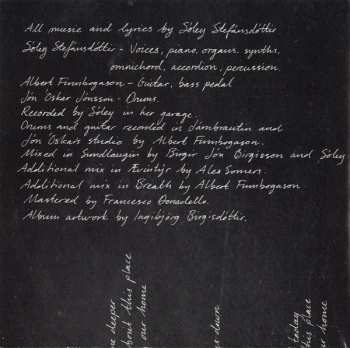 All music and lyrics by Sóley Stefánsdóttir
Sóley Stefánsdóttir - Voices, piano, organs, synths,
omnichord, accordion, percussion.
Albert Finnbogason - Guitar, bass pedal
Jón Óskar Jónsson - Drums.
Recorded by Sóley in her garage.
Drums and guitar recorded in Járnbrautin and
Jón Óskar's studio by Albert Finnbogason.
Mixed in Sundlaugin by Birgir Jón Birgisson and Sóley
Additional mix in Ævintýr by Alex Somers.
Additional mix in Breath by Albert Finnbogason
Mastered by Francesco Donadello.
Album artwork by Ingibjörg Birgisdóttir.
deeper
this place
our home
down
today
this place
our home